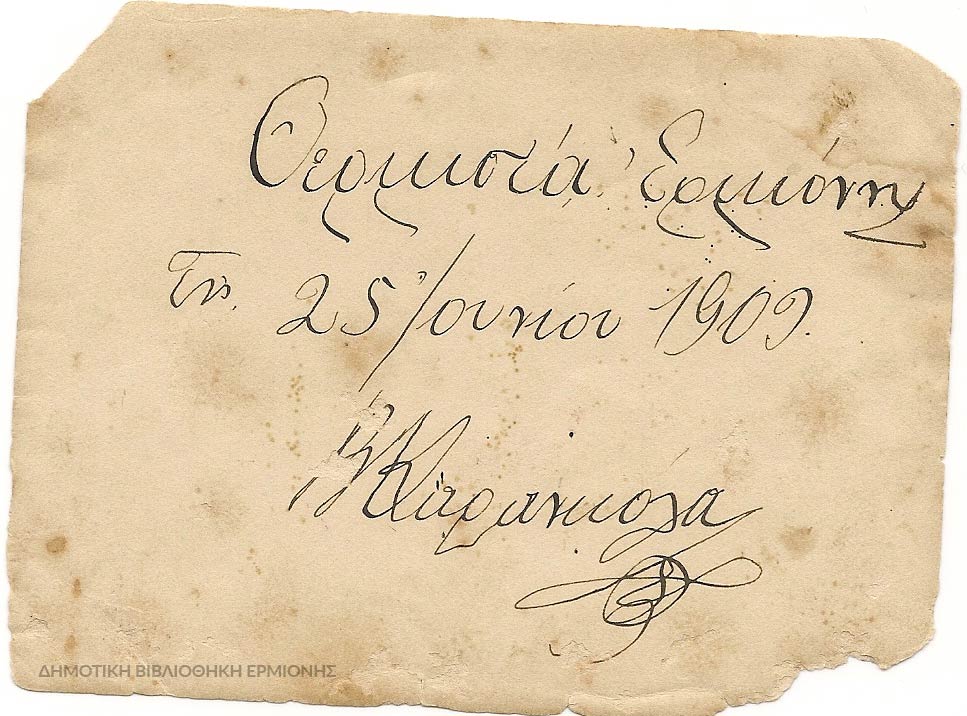 Θερμισία Ἑρμιόνης
Τῇ 25 Ἰουνίου 1909.
Καρανικολα
ΔΗΜΟΤΙΚΗ ΒΙΒΛΙΟΘΗΚΗ ΕΡΜΙΟΝΗΣ